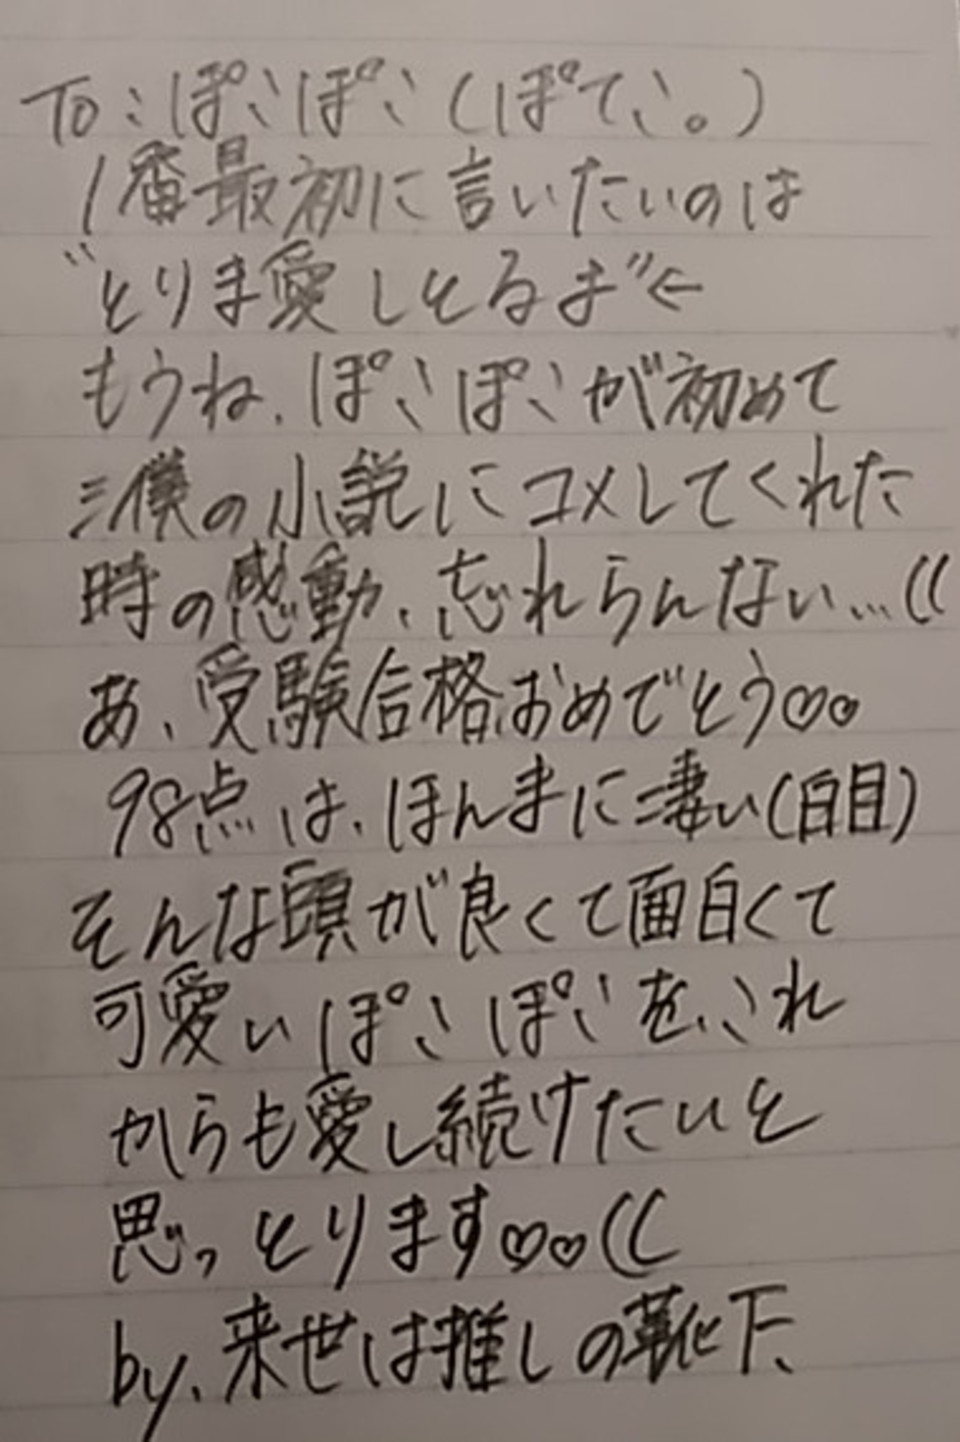 To:ぽこぽこ(ぽてこ。)
1番最初に言いたいのは
"とりま愛しとるま"←
もうね、ぽこぽこが初めて
僕の小説にコメしてくれた
時の感動、忘れらんない…((
あ、受験合格おめでとう♡♡
98点は、ほんまに凄い(白目)
そんな頭が良くて面白くて
可愛いぽこぽこを、これ
からも愛し続けたいと
思っとります♡♡((
by、来世は推しの靴下、